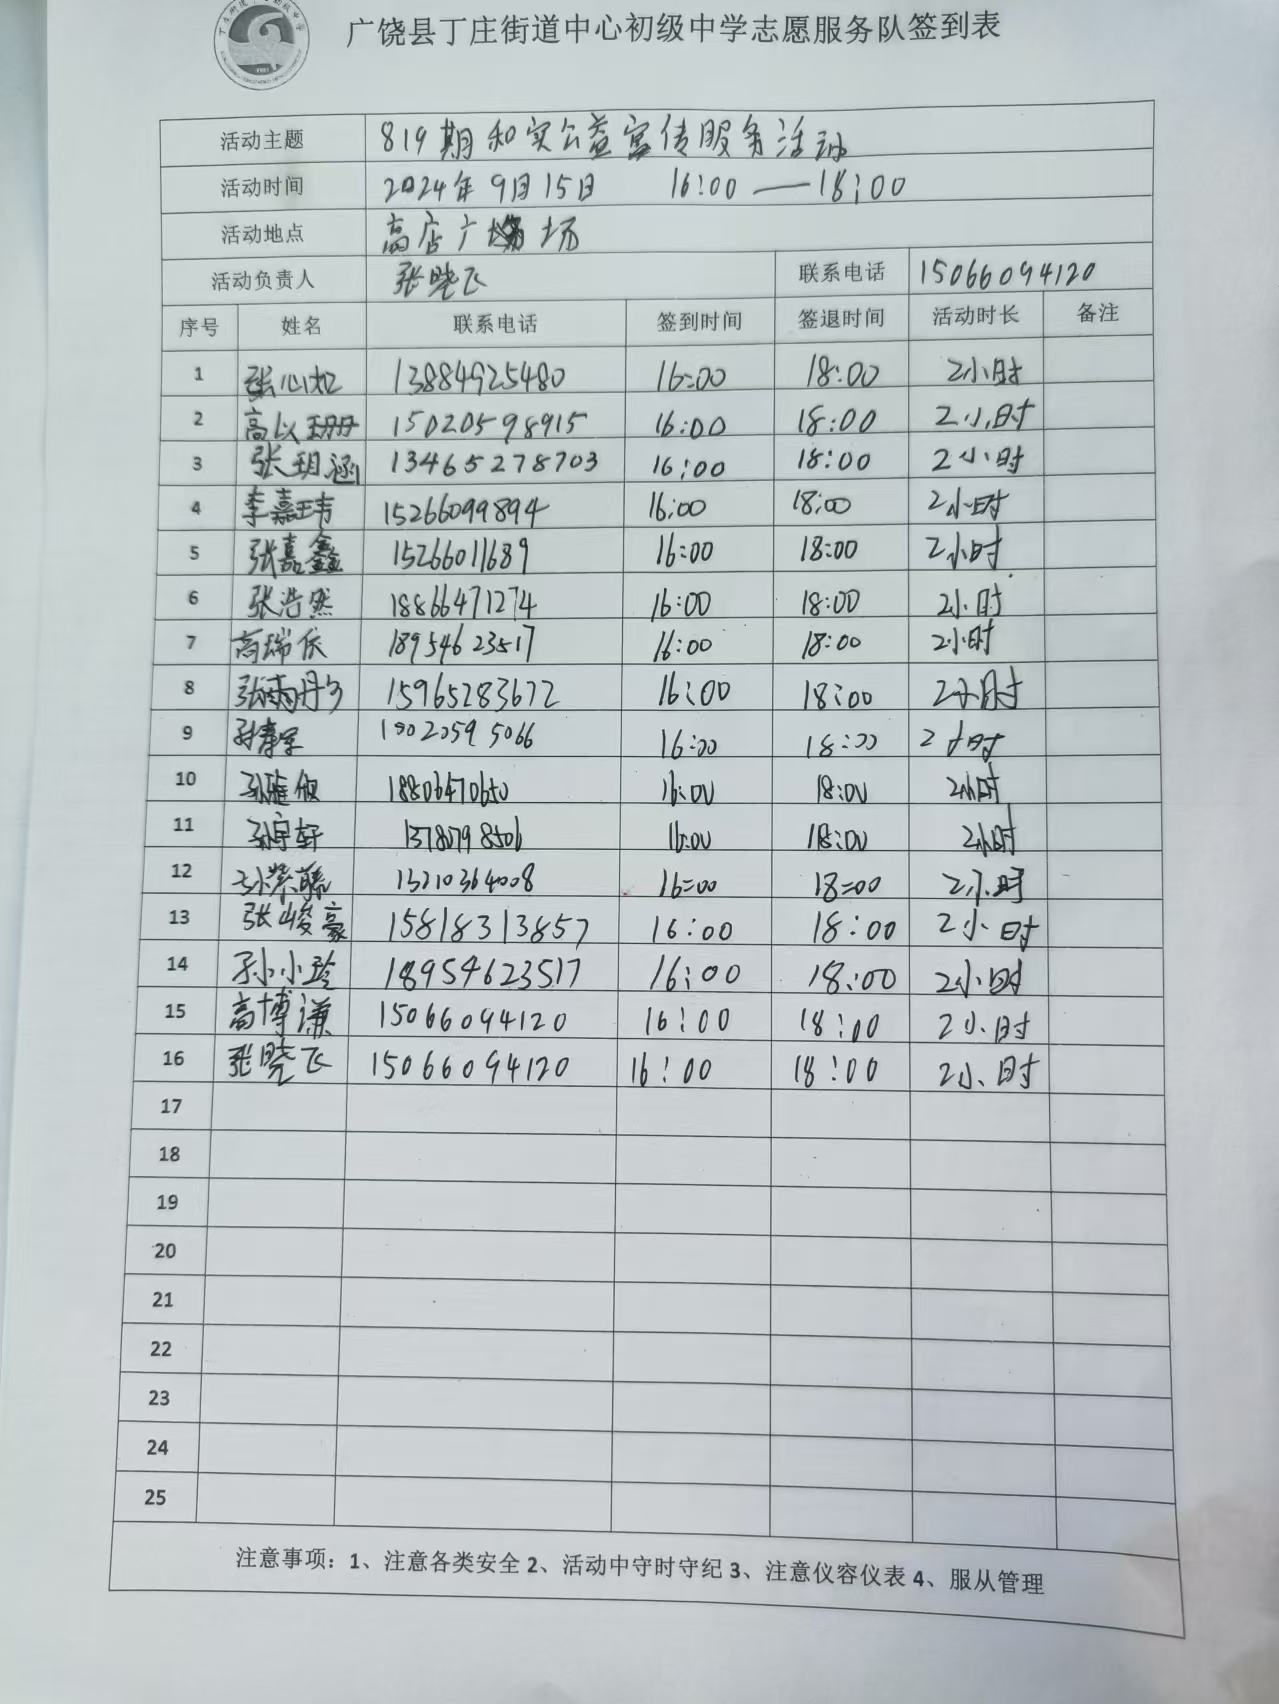 广饶县丁庄街道中心初级中学志愿服务队签到表
活动主题 819期和实公益宣传服务活动
活动时间 2024年9月15日 16:00——18:00
活动地点 高店广场
活动负责人 张晓飞 联系电话 15066094120
序号 姓名 联系电话 签到时间 签退时间 活动时长 备注
1 张心如 13884925480 16:00 18:00 2小时
2 高以珊 15020598915 16:00 18:00 2小时
3 张玥涵 13465278703 16:00 18:00 2小时
4 李嘉玮 15266099894 16:00 18:00 2小时
5 张嘉鑫 15266011689 16:00 18:00 2小时
6 张浩然 18866471274 16:00 18:00 2小时
7 高瑞依 18954623517 16:00 18:00 2小时
8 张雨 15965283672 16:00 18:00 2小时
9 16:00 18:00 2小时
10 18806470650 16:00 18:00 2小时
11 孙宇轩 16:00 18:00 2小时
12 孙紫藤 13210364008 16=00 18=00 2小时
13 张峻豪 15818313857 16:00 18:00 2小时
14 孙小玲 18954623517 16:00 18:00 2小时
15 高博谦 15066094120 16:00 18:00 2小时
16 张晓飞 15066094120 16:00 18:00 2小时
17
18
19
20
21
22
23
24
25
注意事项：1、注意各类安全 2、活动中守时守纪 3、注意仪容仪表 4、服从管理